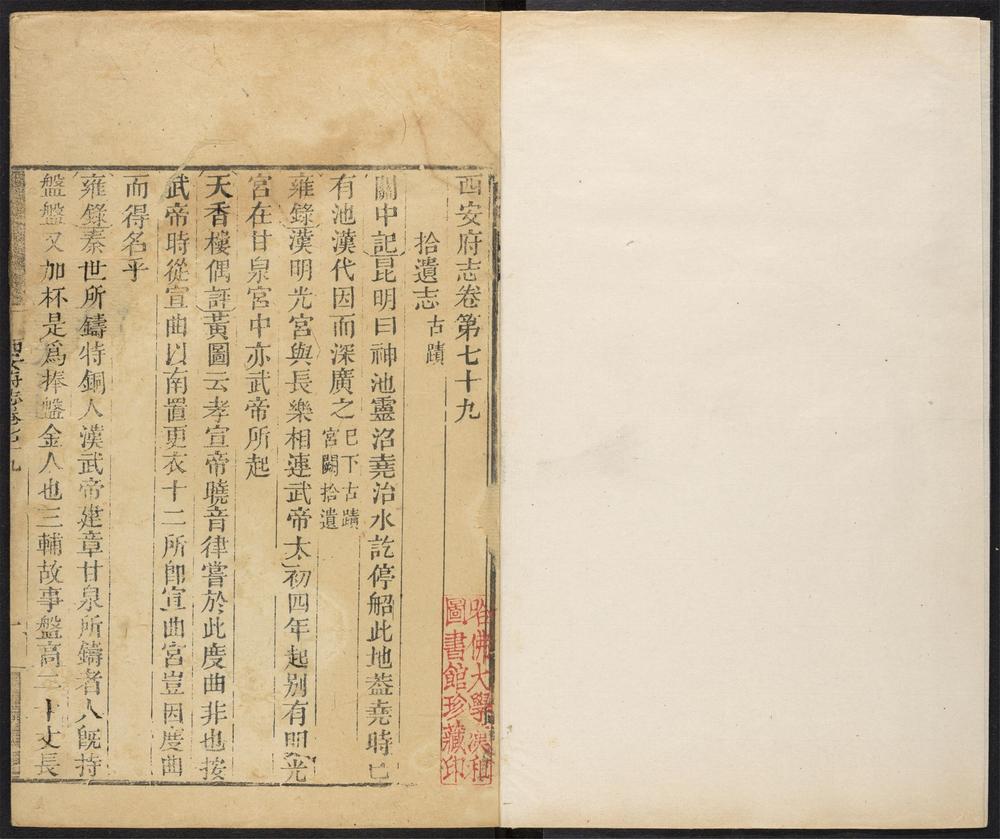 西安府志卷第七十九
拾遺志 古蹟
關中記昆明曰神池靈沼堯治水訖停船此地葢堯時已
有池漢代因而深廣之 已下古蹟宮闕拾遺
雍錄漢明光宮與長樂相連武帝太初四年起別有明光
宮在甘泉宮中亦武帝所起
天香樓偶評黃圖云孝宣帝曉音律嘗於此度曲非也按
武帝時從宣曲以南置更衣十二所卽宣曲宮豈因度曲
而得名乎
雍錄秦世所鑄特銅人漢武帝建章甘泉所鑄者人旣持
盤盤又加杯是爲捧盤金人也三輔故事盤高二十丈長
西安府志卷七十九
哈佛大學漢和
圖書館珍藏印